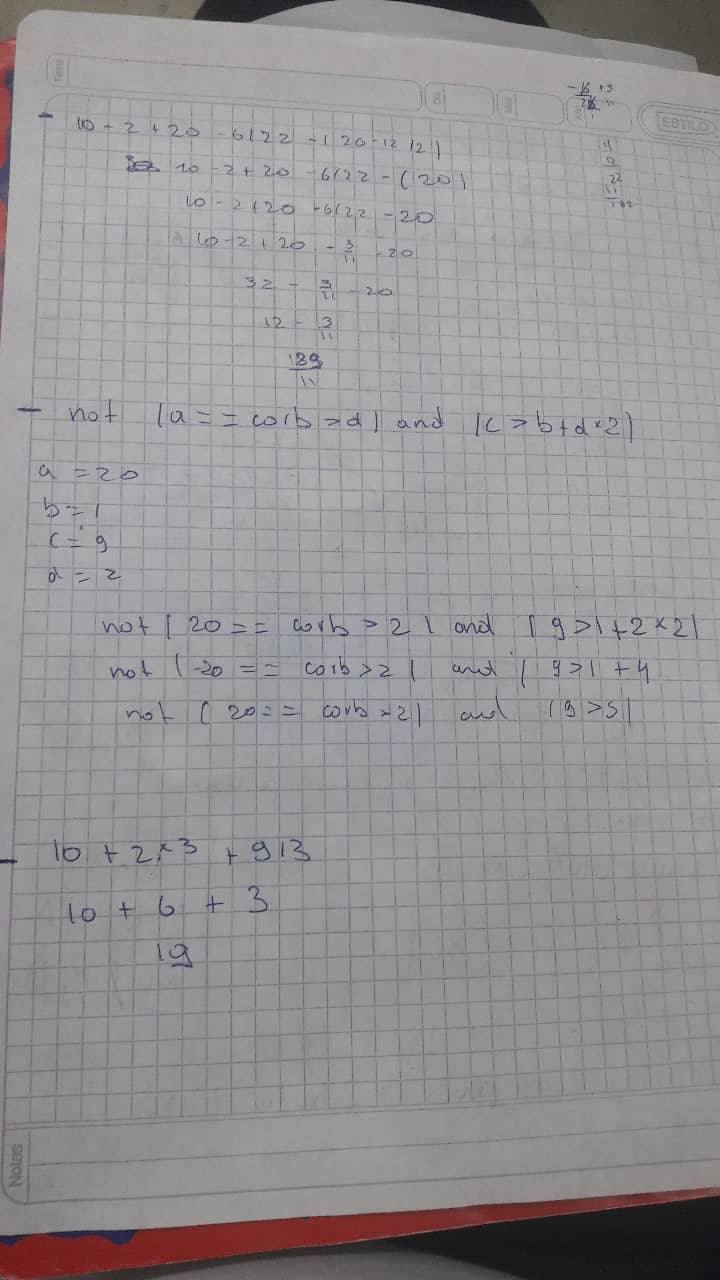 - 10 - 2 + 20 - 6/22 - (20-12/2)
10 - 2 + 20 - 6/22 - (20)
10 - 2 + 20 - 6/22 - 20
10 - 2 + 20 - 3/11 - 20
32 - 3/11 - 20
12 - 3/11
189/11
- not (a == c or b > d) and (c > b + d * 2)
a = 20
b = 1
c = 9
d = 2
not ( 20 == c or b > 2 ) and ( 9 > 1 + 2 * 2)
not ( 20 == c or b > 2 ) and ( 9 > 1 + 4
not ( 20 == c or b > 2) and (9 > 5)
- 10 + 2 * 3 + 9/3
10 + 6 + 3
19
ESTILO
Notas